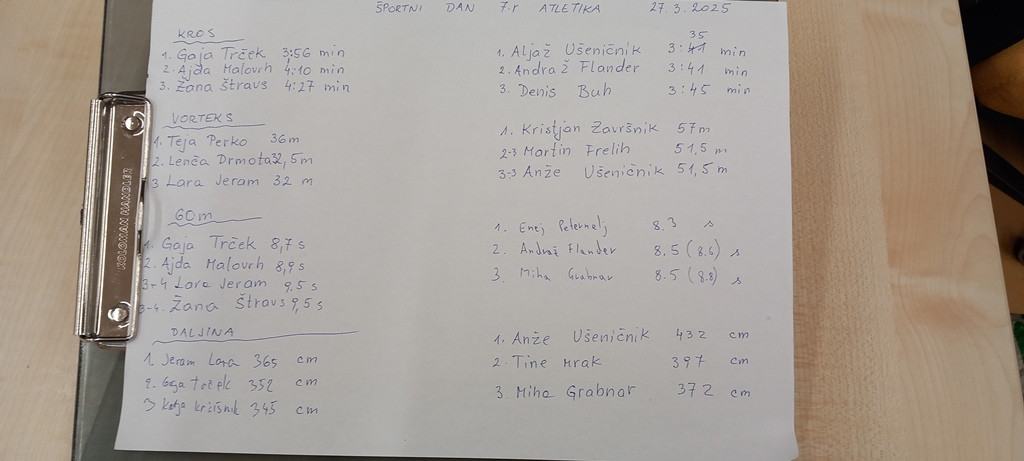 ŠPORTNI DAN 7.r ATLETIKA 27.3.2025
KROS
1. Gaja Trček 3:56 min
2. Ajda Malovrh 4:10 min
3. Žana Štravs 4:27 min
35
1. Aljaž Ušeničnik 3:41 min
2. Andraž Flander 3:41 min
3. Denis Buh 3:45 min
VORTEKS
1. Teja Perko 36m
2. Lenča Drmota 32,5m
3 Lara Jeram 32 m
1. Kristjan Završnik 57m
2-3 Martin Frelih 51,5 m
3-3 Anže Ušeničnik 51,5 m
60m
1. Gaja Trček 8,7 s
2. Ajda Malovrh 8,9 s
3-4 Lara Jeram 9,5 s
3-4. Žana Štravs 9,5 s
1. Enej Peternelj 8.3 s
2. Andraž Flander 8.5 (8.6) s
3. Miha Grabnar 8.5 (8.8) s
DALJINA
1. Jeram Lara 365 cm
2. Gaja Trček 352 cm
3 Katja Krčišnik 345 cm
1. Anže Ušeničnik 432 cm
2. Tine Mrak 397 cm
3 Miha Grabnar 372 cm
KOLOMAN HANDLER